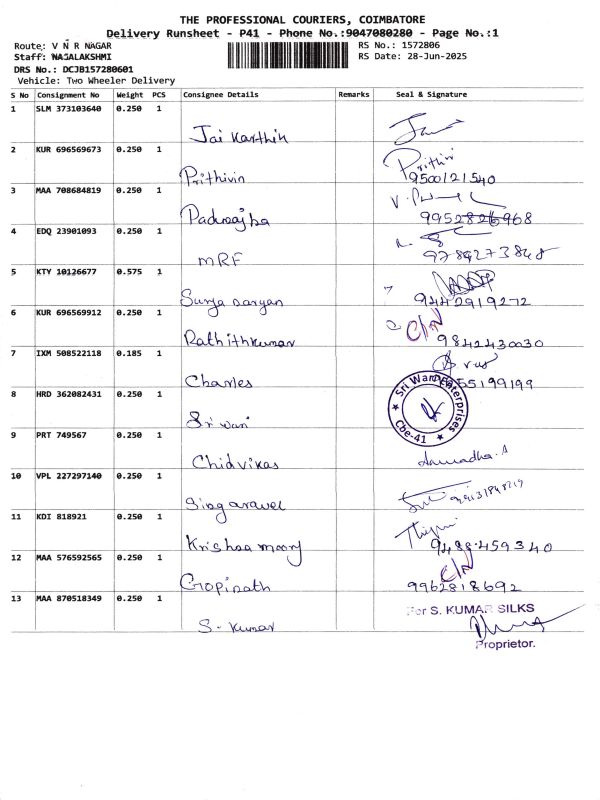 THE PROFESSIONAL COURIERS, COIMBATORE
Delivery Runsheet - P41 - Phone No.:9047080280 - Page No.:1
Route: V N R NAGAR
RS No.: 1572806
Staff: NAGALAKSHMI
RS Date: 28-Jun-2025
DRS No.: DCJB157280601
Vehicle: Two Wheeler Delivery
S No Consignment No Weight PCS Consignee Details Remarks Seal & Signature
1 SLM 373103640 0.250 1
Jai Karthik
2 KUR 696569673 0.250 1
Prithivin Prithvi
9500121540
3 MAA 708684819 0.250 1
Padmajha
4 EDQ 23901093 0.250 1
MRF
5 KTY 10126677 0.575 1
Surya narayan 9442919272
6 KUR 696569912 0.250 1
C/N
Rathithkumar 9842430030
7 IXM 508522118 0.185 1
Charles 55199199
8 HRD 362082431 0.250 1
Sri wari
Sri Wari Enterprises
Cbe-41
9 PRT 749567 0.250 1
Chidvikas Anuradha.S
10 VPL 227297140 0.250 1
Singaravel
11 KDI 818921 0.250 1
Krishna moorthy 9488459340
12 MAA 576592565 0.250 1
C/N
Gopinath 9962818692
13 MAA 870518349 0.250 1
For S. KUMAR SILKS
S. Kumar
Proprietor.